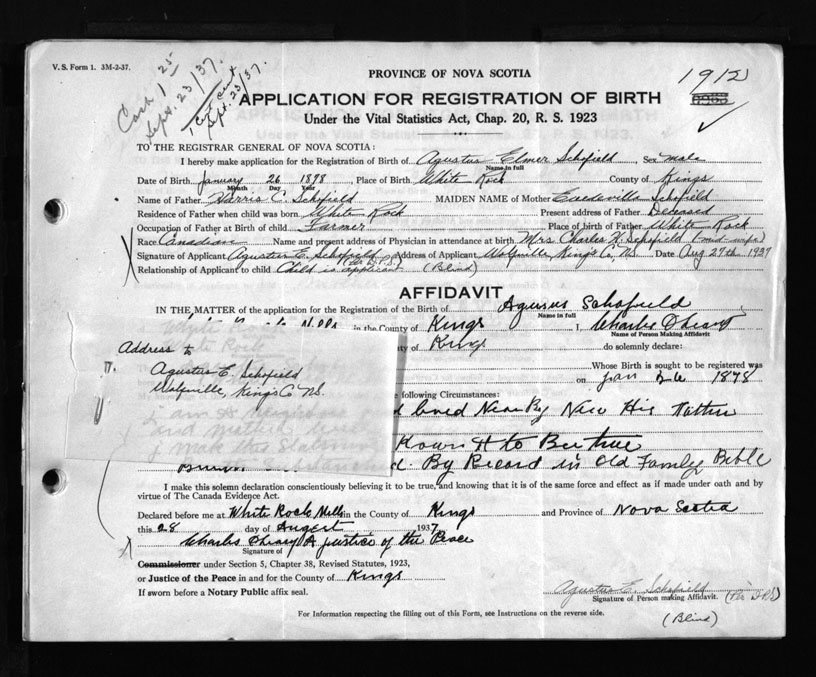 V. S. Form 1. 3M-2-37.
Cash 1 25
Sept. 23/37.
Sept. 23/37.
1912
PROVINCE OF NOVA SCOTIA
APPLICATION FOR REGISTRATION OF BIRTH
Under the Vital Statistics Act, Chap. 20, R. S. 1923
TO THE REGISTRAR GENERAL OF NOVA SCOTIA:
I hereby make application for the Registration of Birth of Agustus Elmer Schofield Sex male
Name in full
Date of Birth January 26 1898 Place of Birth White Rock County of Kings
Month Day Year
Name of Father Harris C. Schofield MAIDEN NAME of Mother Schofield
Residence of Father when child was born White Rock Present address of Father Deceased
Occupation of Father at Birth of child Farmer Place of birth of Father White Rock
Race Canadian Name and present address of Physician in attendance at birth Mrs. Charles H. Schofield (mid-wife)
Signature of Applicant Agustus E. Schofield Address of Applicant Wolfville, King's Co, N.S. Date Aug 27th 1937
(Per D.P.S.)
Relationship of Applicant to child Child is applicant (Blind)
AFFIDAVIT
IN THE MATTER of the application for the Registration of the Birth of Agusus Schofield
Name in full
in the County of Kings I, Charles
Name of Person Making Affidavit
ty of Kings do solemnly declare:
Address to
Agustus E. Schofield
Wolfville, King's Co N.S.
Whose Birth is sought to be registered was
on Jan 1898
e following Circumstances:
lived Near By New His Father
Known It to Bee true
By Record in Old Family Bible
I make this solemn declaration conscientiously believing it to be true, and knowing that it is of the same force and effect as if made under oath and by
virtue of The Canada Evidence Act.
Declared before me at White Rock Mills in the County of Kings and Province of Nova Scotia
this 28 day of Augest 1937
Charles A justice of the Peace
Signature of
Commissioner under Section 5, Chapter 38, Revised Statutes, 1923,
or Justice of the Peace in and for the County of Kings
If sworn before a Notary Public affix seal.
Agustus E. Schofield
Signature of Person making Affidavit. (Per D.P.S)
(Blind)
For Information respecting the filling out of this Form, see Instructions on the reverse side.